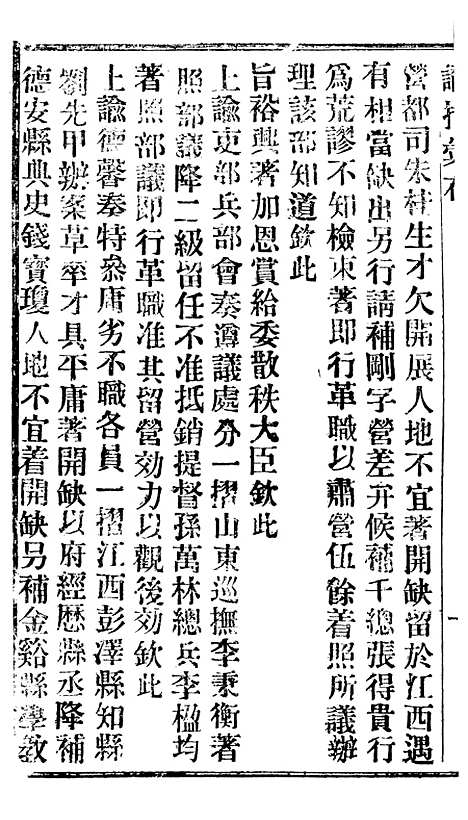 諭摺彙存
營都司朱桂生才欠開展人地不宜著開缺留於江西遇
有相當缺出另行請補剛字營差弁候補千總張得貴行
爲荒謬不知檢束著即行革職以肅營伍餘着照所議辦
理該部知道欽此
旨裕興著加恩賞給委散秩大臣欽此
上諭吏部兵部會奏遵議處分一摺山東巡撫李秉衡著
照部議降二級留任不准抵銷提督孫萬林總兵李楹均
著照部議即行革職准其留營効力以觀後効欽此
上諭德馨奏特叅庸劣不職各員一摺江西彭澤縣知縣
劉先甲辦案草率才具平庸著開缺以府經歷縣丞降補
德安縣典史錢寶瓊人地不宜着開缺另補金谿縣學教